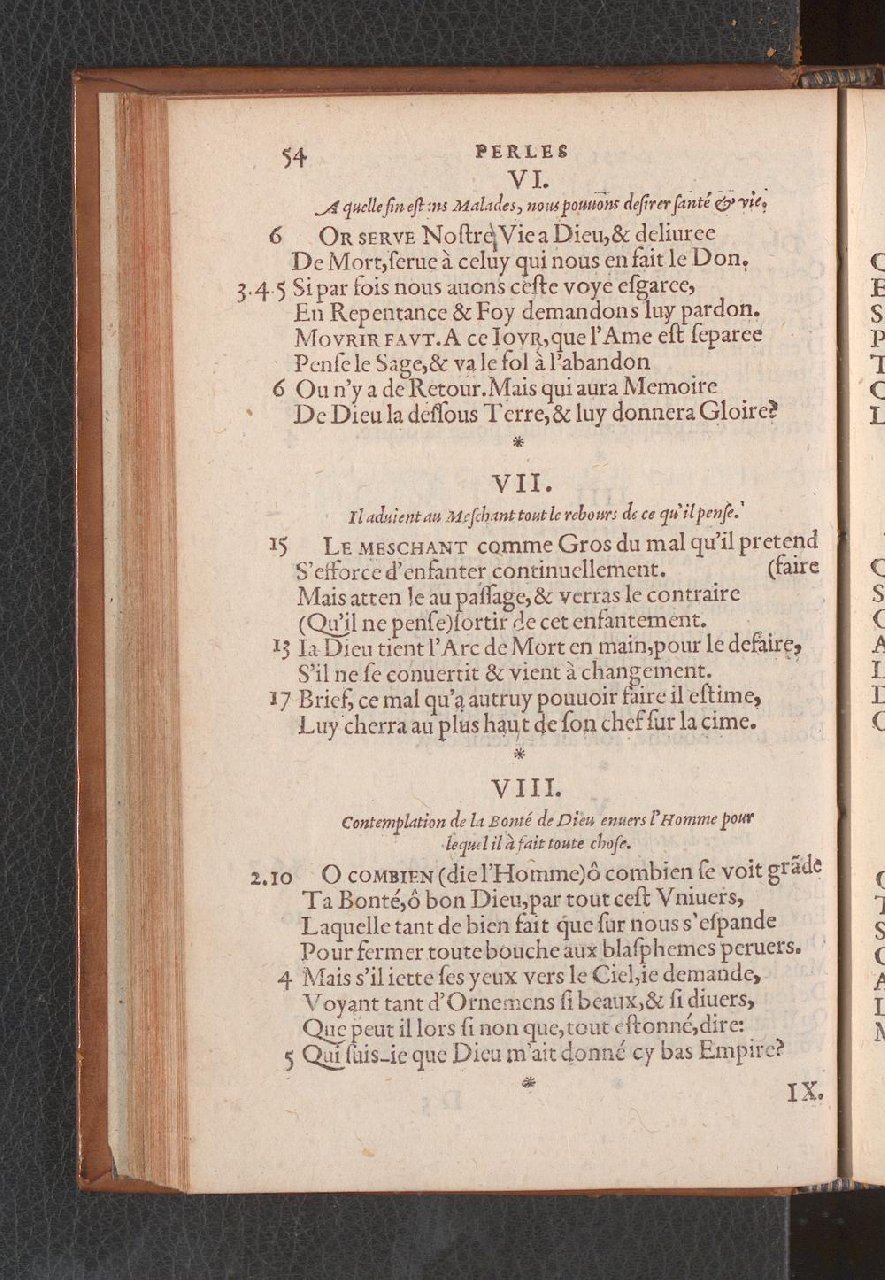 54 PERLES
VI.
A quelle fin eſtans Malades, nous pouuons deſirer ſanté & vie.
6 OR SERVE Noſtre Vie a Dieu,& deliuree
De Mort,ſerue à celuy qui nous en fait le Don.
3.4.5 Si par fois nous auons ceſte voye eſgaree,
En Repentance & Foy demandons luy pardon.
MOVRIR FAVT. A ce IOVR,que l'Ame eſt ſeparee
Penſe le Sage,& va le fol à l'abandon
6 Ou n'y a de Retour. Mais qui aura Memoire
De Dieu la deſſous Terre,& luy donnera Gloire?
*
VII.
Il aduient au Meſchant tout le rebours de ce qu'il penſe.
15 LE MESCHANT comme Gros du mal qu'il pretend
S'efforce d'enfanter continuellement. (faire
Mais atten le au paſſage,& verras le contraire
(Qu'il ne penſe)ſortir de cet enfantement.
13 Ia Dieu tient l'Arc de Mort en main,pour le defaire,
S'il ne ſe conuertit & vient à changement.
17 Brief, ce mal qu'a autruy pouuoir faire il eſtime,
Luy cherra au plus haut de ſon chef ſur la cime.
*
VIII.
Contemplation de la Bonté de Dieu enuers l'Homme pour
lequel il à fait toute choſe.
2.10 O COMBIEN (die l'Homme)ô combien ſe voit grãde
Ta Bonté,ô bon Dieu,par tout ceſt Vniuers,
Laquelle tant de bien fait que ſur nous s'eſpande
Pour fermer toute bouche aux blaſphemes peruers.
4 Mais s'il iette ſes yeux vers le Ciel,ie demande,
Voyant tant d'Ornemens ſi beaux,& ſi diuers,
Que peut il lors ſi non que,tout eſtonné,dire:
5 Qui ſuis-ie que Dieu m'ait donné cy bas Empire?
*
IX.